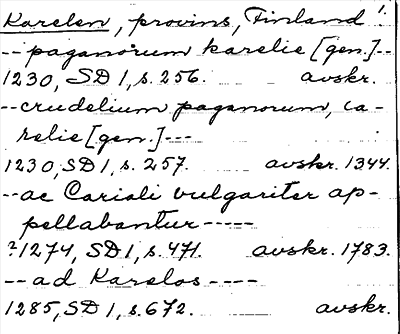 Karelen, provins, Finland 1.
-- paganorum karelie [gen.] --
1230, SD 1, s. 256. avskr.
-- crudelium paganorum, ca-
relie [gen.] ---
1230, SD 1, s. 257. avskr. 1344.
-- ac Cariali vulgariter ap-
pellabantur -----
?1274, SD 1, s. 471. avskr. 1783.
-- ad Karelos ----
1285, SD 1, s. 672. avskr.